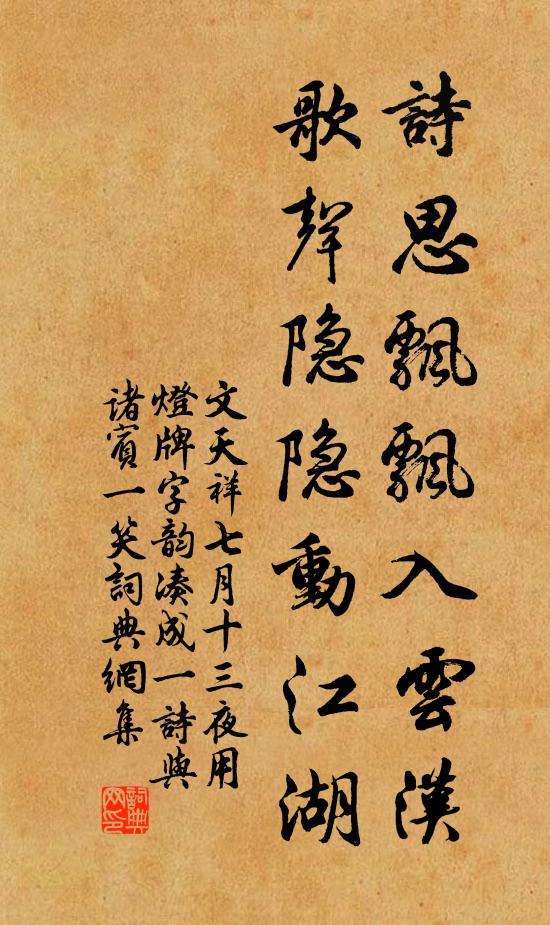 詩思飄飄入雲漢
歌聲隐隐動江湖
文天祥七月十三夜用
燈牌字韵凑成一詩與
诸賓一笑詞典網集
詞典网印